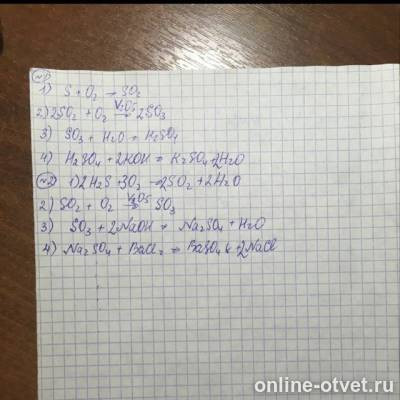 №1
1) S + O₂ → SO₂
V₂O₅
2) 2SO₂ + O₂ → 2SO₃
3) SO₃ + H₂O = H₂SO₄
4) H₂SO₄ + 2KOH = K₂SO₄ + 2H₂O
№2 1) 2H₂S + 3O₂ → 2SO₂ + 2H₂O
V₂O₅
2) SO₂ + O₂ ⇒ SO₃
3) SO₃ + 2NaOH = Na₂SO₄ + H₂O
4) Na₂SO₄ + BaCl₂ = BaSO₄↓ + 2NaCl
online-otvet.ru